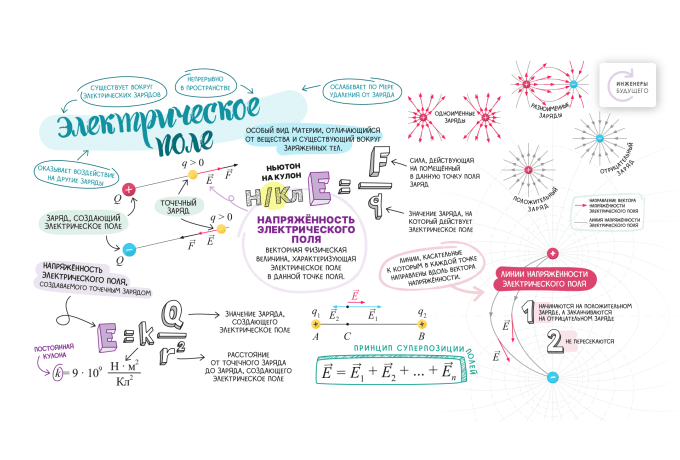 СУЩЕСТВУЕТ ВОКРУГ
ЭЛЕКТРИЧЕСКИХ ЗАРЯДОВ
НЕПРЕРЫВНО
В ПРОСТРАНСТВЕ
ОСЛАБЕВАЕТ ПО МЕРЕ
УДАЛЕНИЯ ОТ ЗАРЯДА
ИНЖЕНЕРЫ
БУДУЩЕГО
ЭЛЕКТРИЧЕСКОЕ
ПОЛЕ
ОСОБЫЙ ВИД МАТЕРИИ, ОТЛИЧАЮЩИЙСЯ
ОТ ВЕЩЕСТВА И СУЩЕСТВУЮЩИЙ ВОКРУГ
ЗАРЯЖЕННЫХ ТЕЛ.
ОДНОИМЕННЫЕ
ЗАРЯДЫ
РАЗНОИМЕННЫЕ
ЗАРЯДЫ
ПОЛОЖИТЕЛЬНЫЙ
ЗАРЯД
ОТРИЦАТЕЛЬНЫЙ
ЗАРЯД
НАПРАВЛЕНИЕ ВЕКТОРА
НАПРЯЖЁННОСТИ
ЭЛЕКТРИЧЕСКОГО ПОЛЯ
ЛИНИЯ НАПРЯЖЁННОСТИ
ЭЛЕКТРИЧЕСКОГО ПОЛЯ
ОКАЗЫВАЕТ ВОЗДЕЙСТВИЕ
НА ДРУГИЕ ЗАРЯДЫ
q > 0
E⃗ F⃗
+
Q
ЗАРЯД, СОЗДАЮЩИЙ
ЭЛЕКТРИЧЕСКОЕ ПОЛЕ
ТОЧЕЧНЫЙ
ЗАРЯД
q > 0
F⃗ E⃗
−
Q
НЬЮТОН
НА КУЛОН
Н/Кл E = F
q
СИЛА, ДЕЙСТВУЮЩАЯ
НА ПОМЕЩЁННЫЙ
В ДАННУЮ ТОЧКУ ПОЛЯ
ЗАРЯД
ЗНАЧЕНИЕ ЗАРЯДА, НА
КОТОРЫЙ ДЕЙСТВУЕТ
ЭЛЕКТРИЧЕСКОЕ ПОЛЕ
НАПРЯЖЁННОСТЬ
ЭЛЕКТРИЧЕСКОГО
ПОЛЯ
ВЕКТОРНАЯ ФИЗИЧЕСКАЯ
ВЕЛИЧИНА, ХАРАКТЕРИЗУЮЩАЯ
ЭЛЕКТРИЧЕСКОЕ ПОЛЕ
В ДАННОЙ ТОЧКЕ ПОЛЯ.
ЛИНИИ, КАСАТЕЛЬНЫЕ
К КОТОРЫМ В КАЖДОЙ ТОЧКЕ
НАПРАВЛЕНЫ ВДОЛЬ ВЕКТОРА
НАПРЯЖЁННОСТИ.
ЛИНИИ НАПРЯЖЁННОСТИ
ЭЛЕКТРИЧЕСКОГО ПОЛЯ
1 НАЧИНАЮТСЯ НА ПОЛОЖИТЕЛЬНОМ
ЗАРЯДЕ, А ЗАКАНЧИВАЮТСЯ
НА ОТРИЦАТЕЛЬНОМ ЗАРЯДЕ
2 НЕ ПЕРЕСЕКАЮТСЯ
E⃗
E⃗
НАПРЯЖЁННОСТЬ
ЭЛЕКТРИЧЕСКОГО ПОЛЯ,
СОЗДАВАЕМОГО ТОЧЕЧНЫМ ЗАРЯДОМ
E = k Q
r²
ЗНАЧЕНИЕ ЗАРЯДА,
СОЗДАЮЩЕГО
ЭЛЕКТРИЧЕСКОЕ ПОЛЕ
РАССТОЯНИЕ
ОТ ТОЧЕЧНОГО ЗАРЯДА
ДО ЗАРЯДА, СОЗДАЮЩЕГО
ЭЛЕКТРИЧЕСКОЕ ПОЛЕ
ПОСТОЯННАЯ
КУЛОНА
k = 9 · 10⁹ Н · м²
Кл²
E⃗
q₁ E⃗₂ E⃗₁ q₂
A C B
ПРИНЦИП СУПЕРПОЗИЦИИ ПОЛЕЙ
E⃗ = E⃗₁ + E⃗₂ + ... + E⃗ₙ